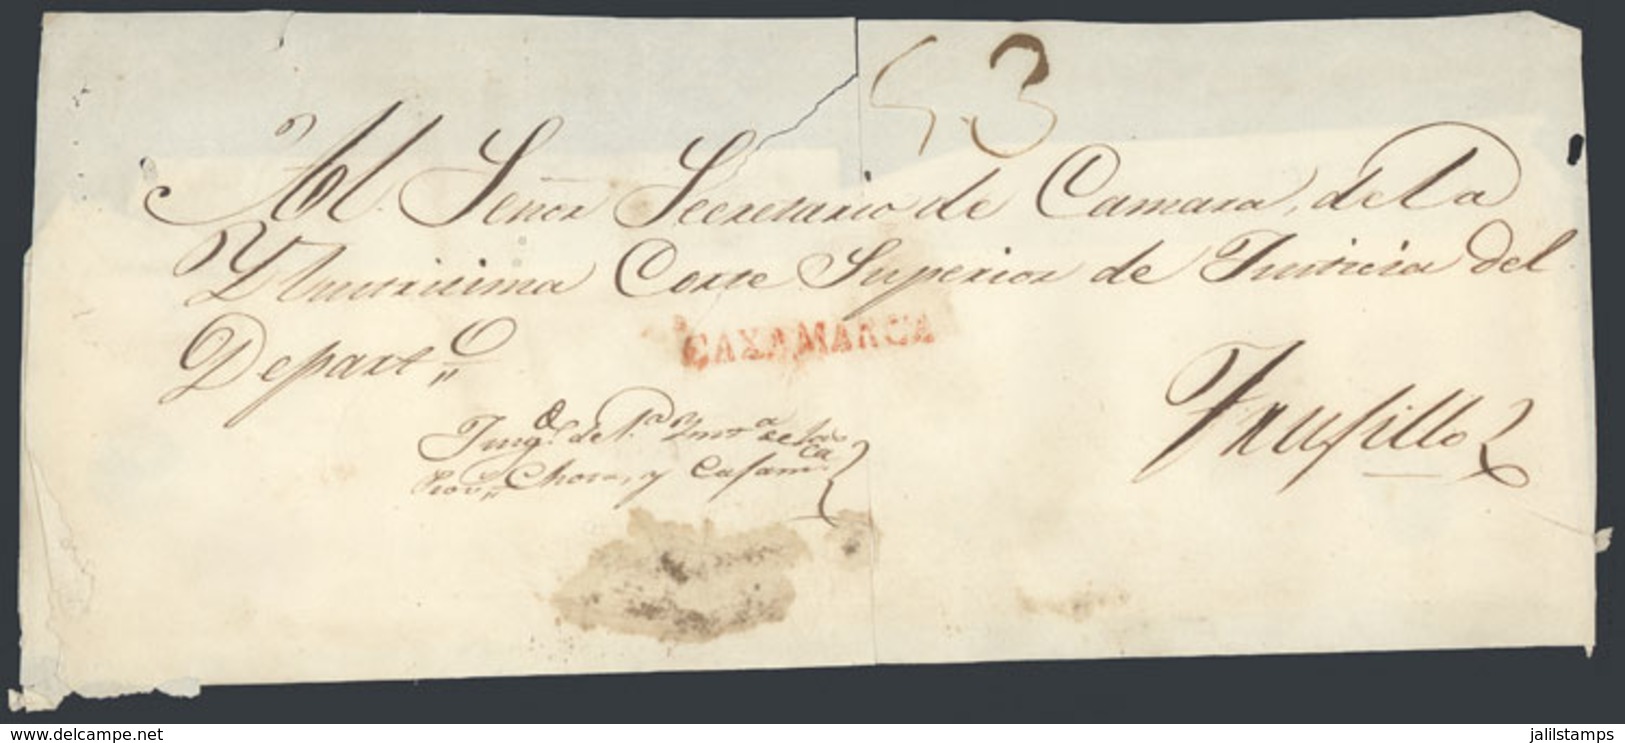 53
Al Señor Secretario de Camara, de la
Yllustrisima Corte Superior de Justicia del
Departo
CAXAMARCA
Trujillo
Juzgo. de 1a. Ynsta. de las
Provs. Chota, y Cajamca
www.delcampe.net
jalilstamps